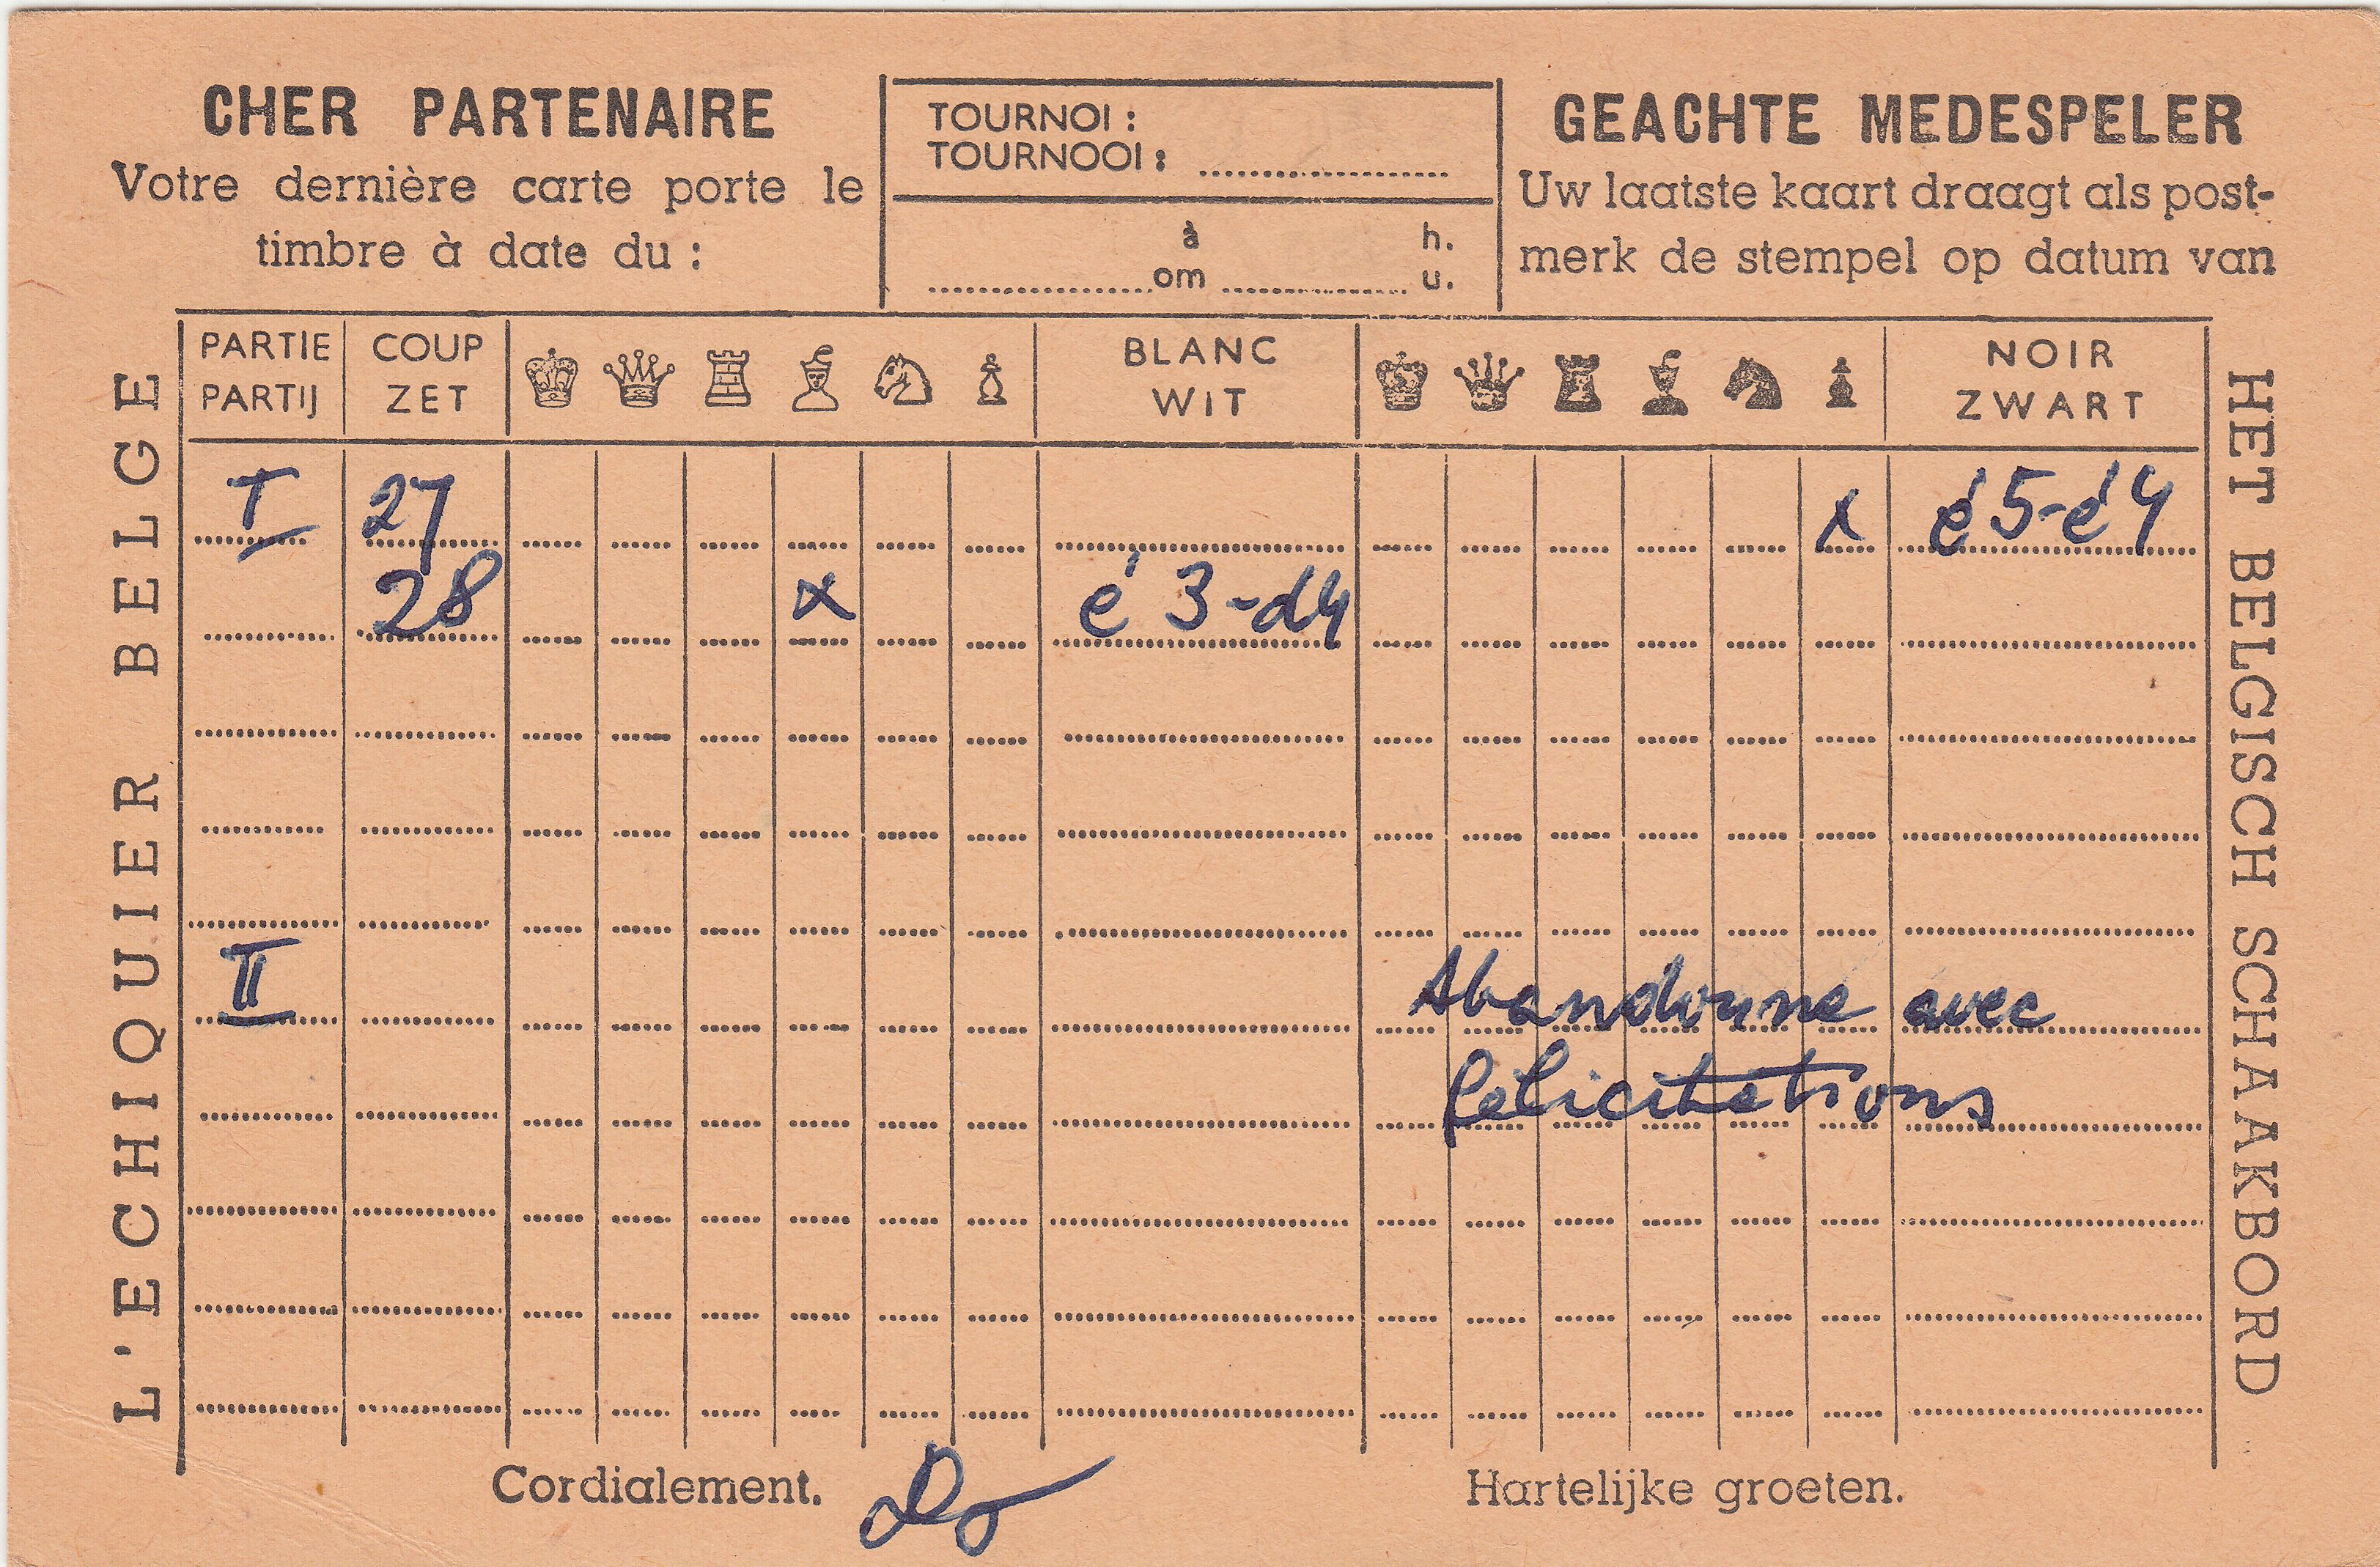 CHER PARTENAIRE
Votre dernière carte porte le
timbre à date du :
TOURNOI :
TOURNOOI :
à h.
om u.
GEACHTE MEDESPELER
Uw laatste kaart draagt als post-
merk de stempel op datum van
L'ECHIQUIER BELGE
PARTIE COUP BLANC NOIR
PARTIJ ZET WIT ZWART
I 27 x é5-é4
28 x é3-d4
II Abandonne avec
félicitations
HET BELGISCH SCHAAKBORD
Cordialement. Hartelijke groeten.